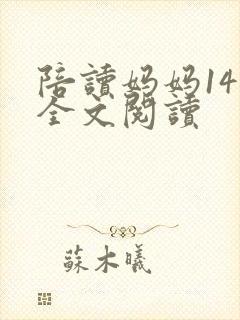 陪讀妈妈14
全文閱讀
蘇木曦